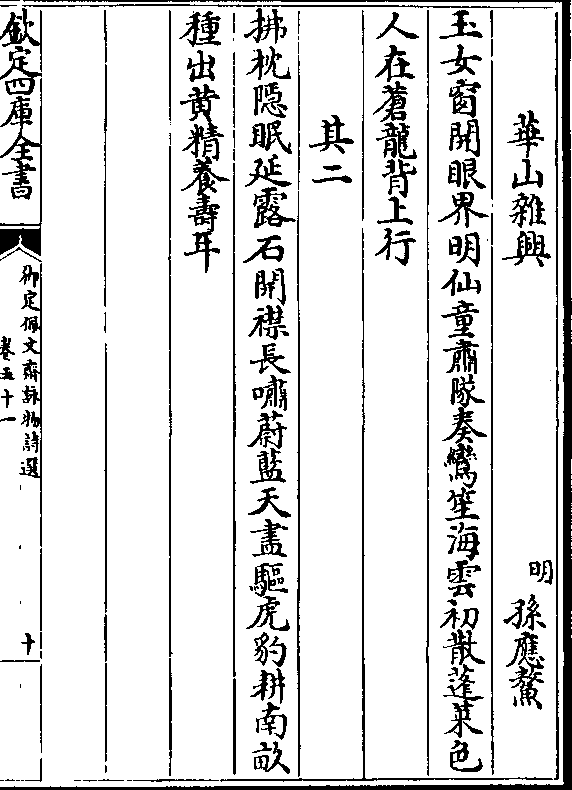 華山雜興
明 孫應鰲
玉女窗開眼界明仙童肅隊奏鸞笙海雲初散蓬萊色
人在蒼龍背上行
其二
拂枕隱眠延露石開襟長嘯蔚藍天盡驅虎豹耕南畝
種出黄精養壽年
欽定四庫全書
御定佩文齋詠物詩選
卷五十一
十